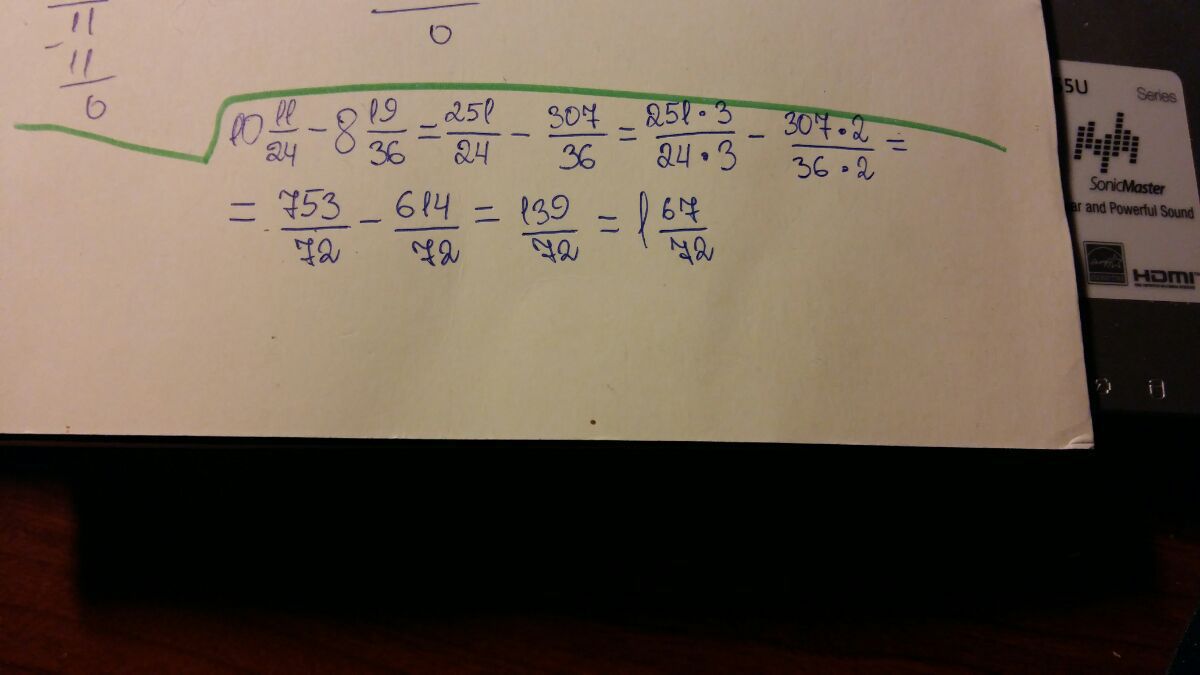 11
- 11
0
0
10 11/24 - 8 19/36 = 251/24 - 307/36 = 251·3/24·3 - 307·2/36·2 =
= 753/72 - 614/72 = 139/72 = 1 67/72
55U Series
SonicMaster
ar and Powerful Sound
HDMI